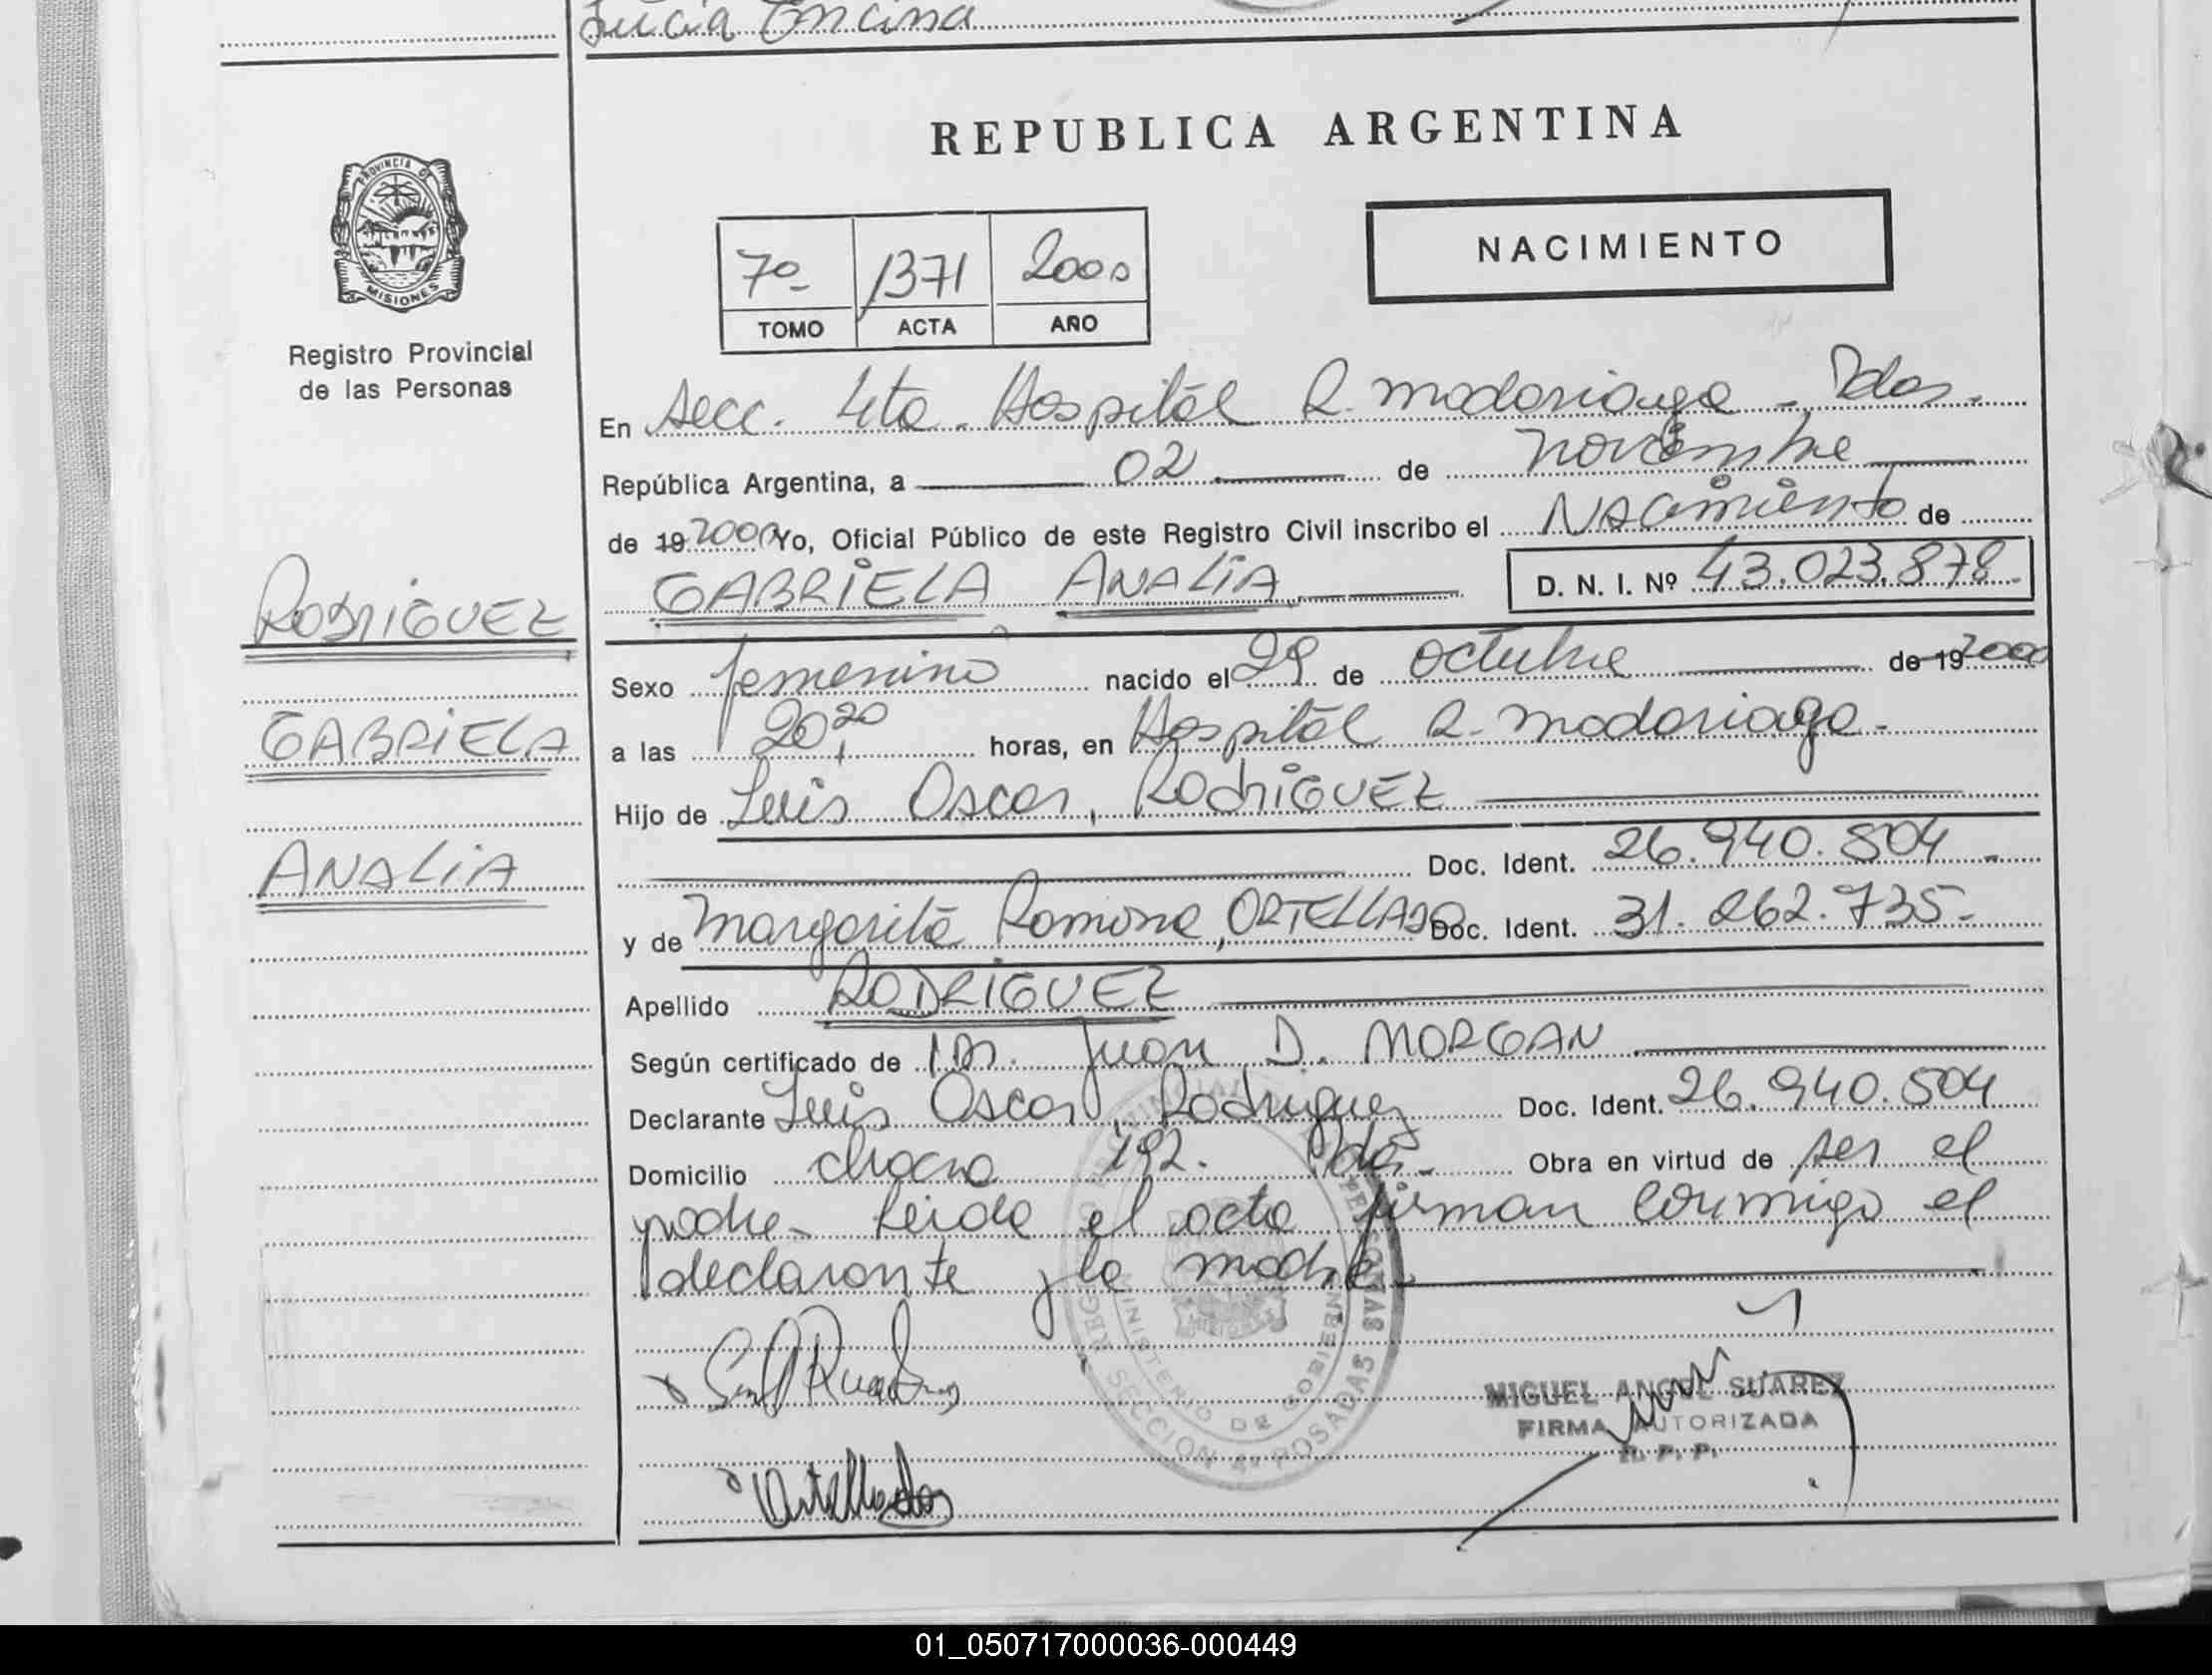 Lucia Encina
REPUBLICA ARGENTINA
PROVINCIA D
MISIONES
Registro Provincial
de las Personas
NACIMIENTO
7º 1371 2000
TOMO ACTA AÑO
En Secc. 4ta. Hospital R. Madariaga - Pdas.
República Argentina, a 02 de noviembre
de 19 2000 Yo, Oficial Público de este Registro Civil inscribo el Nacimiento de
GABRIELA ANALIA D. N. I. Nº 43.023.878.
RODRIGUEZ
GABRIELA
ANALIA
Sexo femenino nacido el 29 de octubre de 19 2000
a las 20,20 horas, en Hospital R. Madariaga.
Hijo de Luis Oscar, RODRIGUEZ
Doc. Ident. 26.940.504
y de Margarita Ramona, ORTELLADO Doc. Ident. 31.262.735.
Apellido RODRIGUEZ
Según certificado de Dr. Juan D. MORGAN
Declarante Luis Oscar, Rodriguez Doc. Ident. 26.940.504
Domicilio chacra 192. Pdas. Obra en virtud de ser el
padre - Leida el acta firman conmigo el
declarante y la madre
MINISTERIO DE GOBIERNO
SECCION 4ª POSADAS
MIGUEL ANGEL SUAREZ
FIRMA AUTORIZADA
R. P. P.
Ortellado
01_050717000036-000449